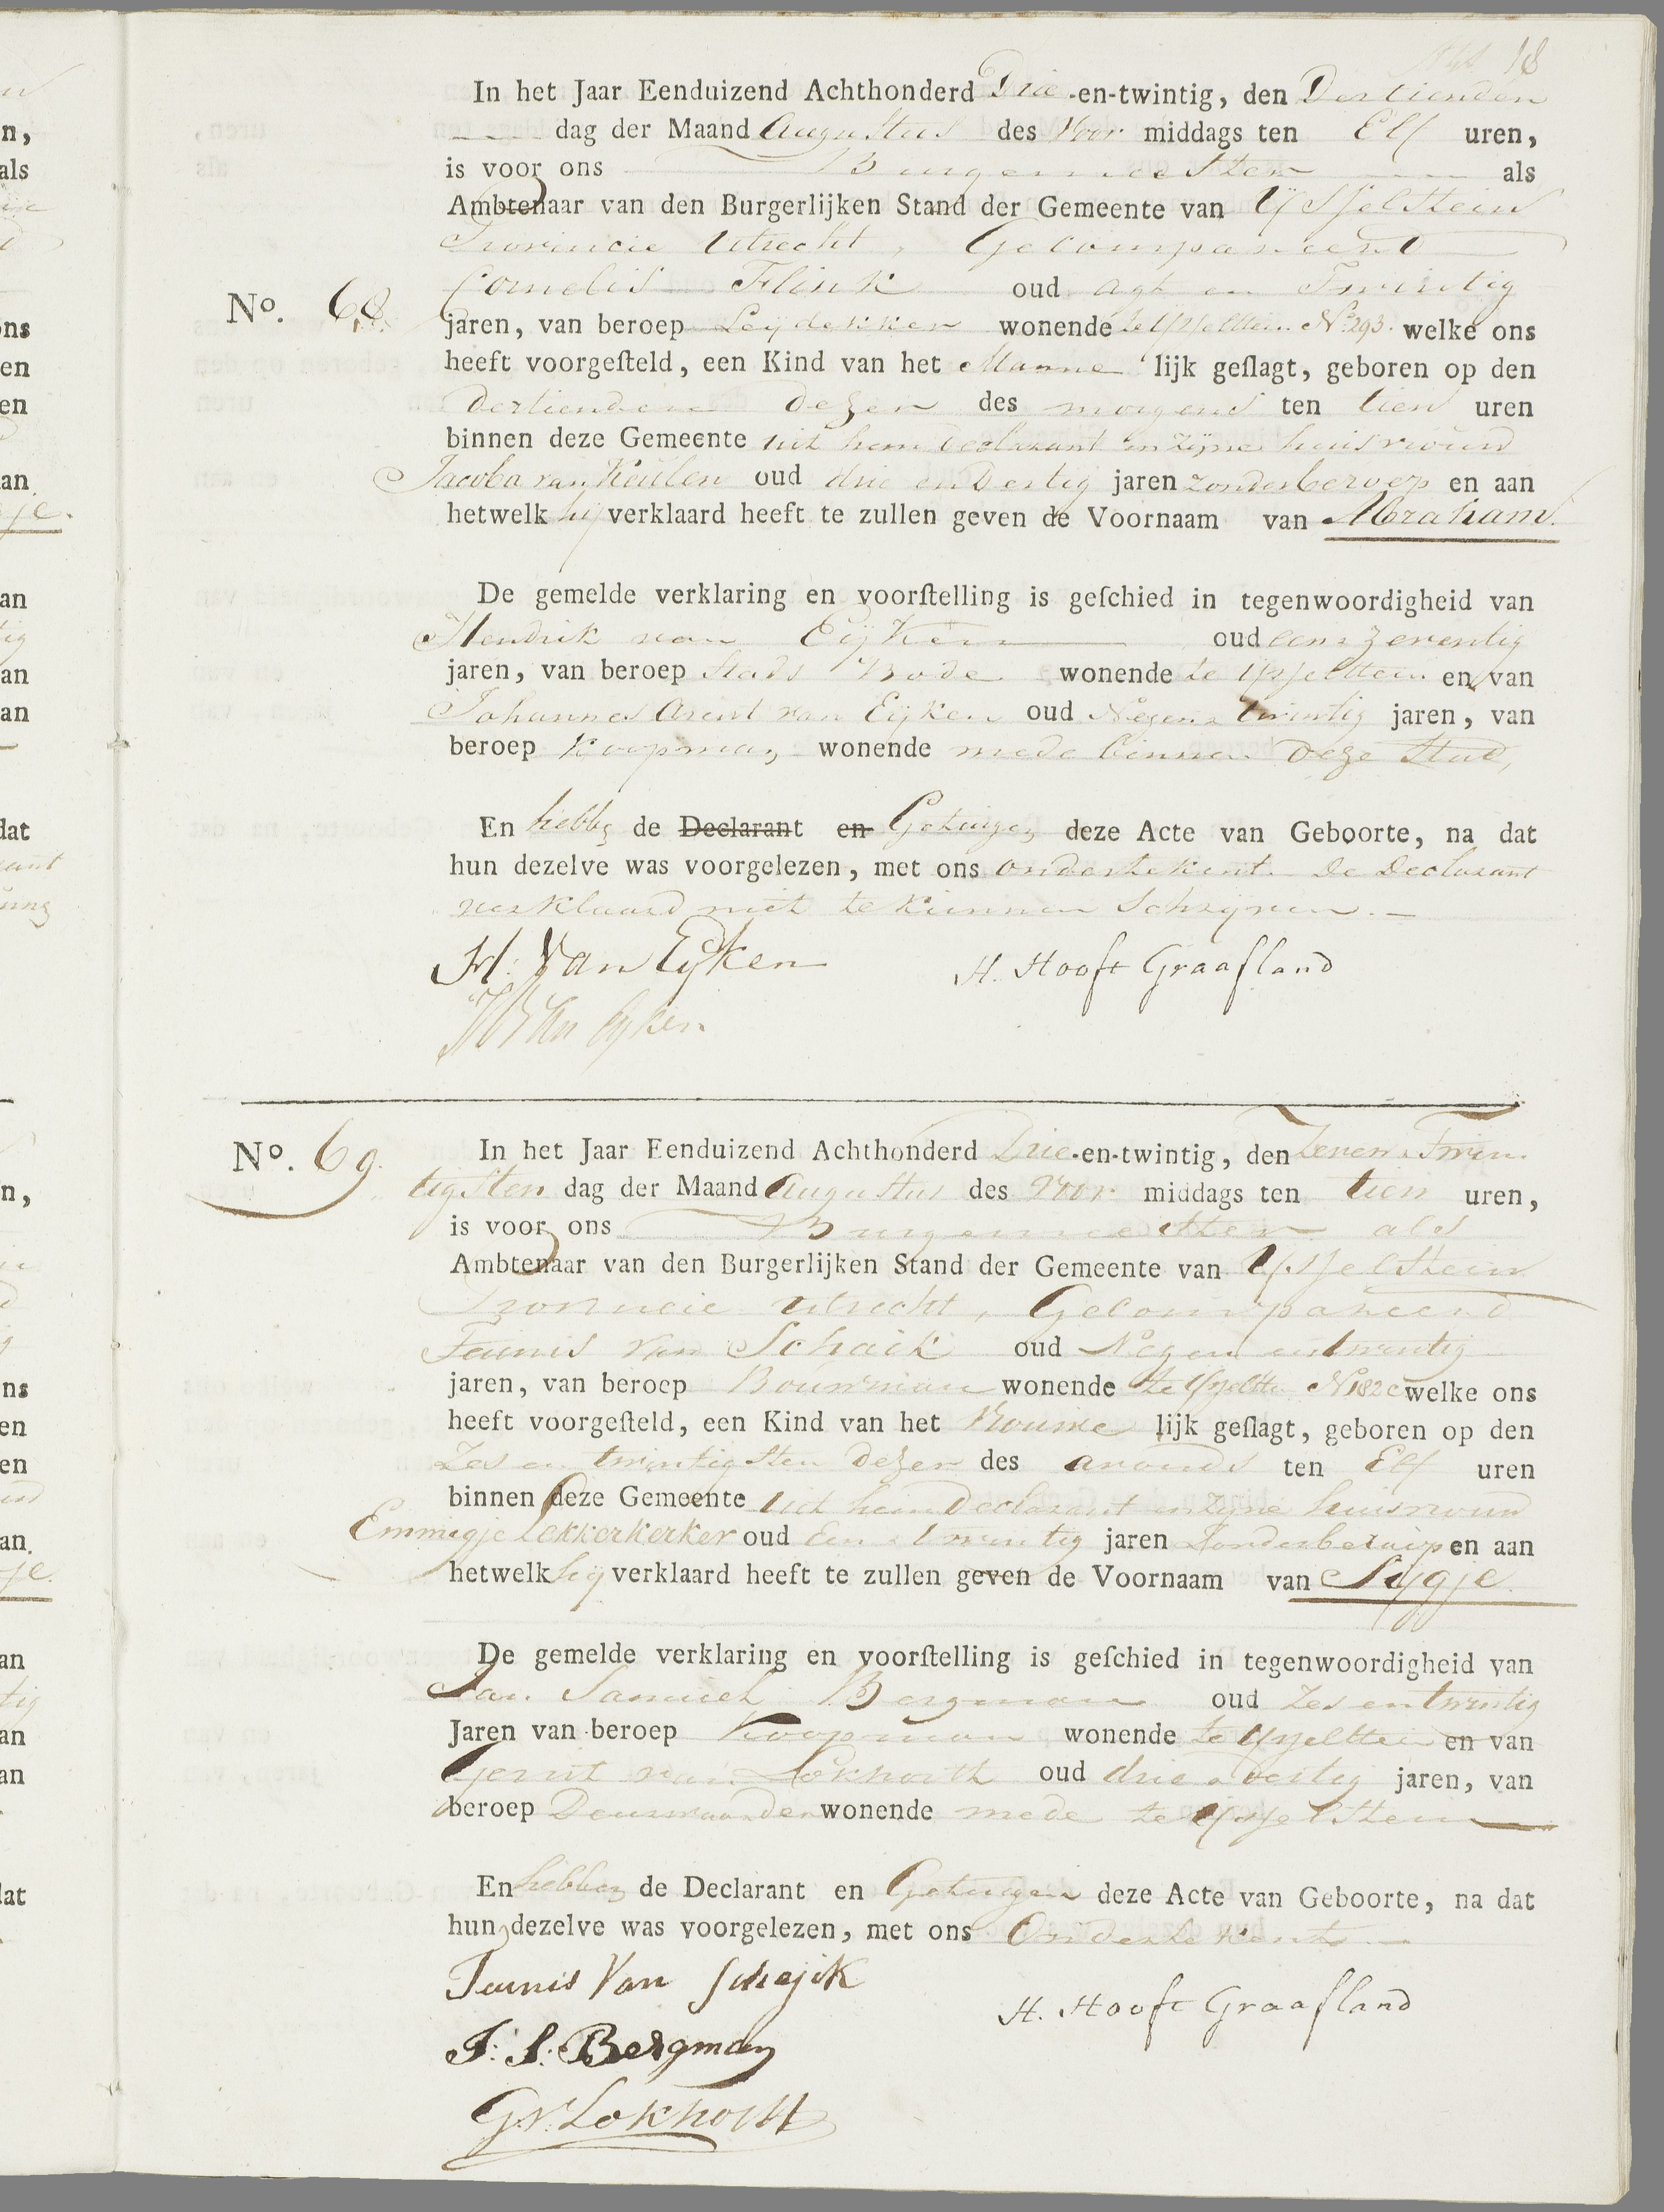 18
In het Jaar Eenduizend Achthonderd Drie-en-twintig, den Dertienden
dag der Maand Augustus des Voor middags ten Elf uren,
is voor ons Burgemeester als
Ambtenaar van den Burgerlijken Stand der Gemeente van IJsselstein
Provincie Utrecht, Gecompareerd
Cornelis Flink oud agt en Twintig
No. 68 jaren, van beroep Leydekker wonende te IJsselstein No. 293. welke ons
heeft voorgesteld, een Kind van het Manne lijk geslagt, geboren op den
dertienden dezer des morgens ten tien uren
binnen deze Gemeente uit hem declarant en zijne huisvrouw
Jacoba van Keulen oud drie en Dertig jaren zonder beroep en aan
hetwelk hij verklaard heeft te zullen geven de Voornaam van Abraham.
De gemelde verklaring en voorstelling is geschied in tegenwoordigheid van
Hendrik van Eijken oud een zeventig
jaren, van beroep Stads Bode wonende te IJsselstein en van
Johannes Arent van Eijken oud Negen twintig jaren, van
beroep Koopman wonende mede binnen deze Stad,
En hebben de Declarant en Getuigen deze Acte van Geboorte, na dat
hun dezelve was voorgelezen, met ons ondertekent. De Declarant
verklaard niet te kunnen Schrijven.
H: Van Eijken H. Hooft Graafland
van Eyken
No. 69. In het Jaar Eenduizend Achthonderd Drie-en-twintig, den Zeven Twin
tigsten dag der Maand Augustus des Voor middags ten tien uren,
is voor ons Burgemeester als
Ambtenaar van den Burgerlijken Stand der Gemeente van IJsselstein
Provincie Utrecht, Gecompareerd
Teunis van Schaik oud Negen en twintig
jaren, van beroep Bouwman wonende te IJsselstein No 182c welke ons
heeft voorgesteld, een Kind van het Vrouwe lijk geslagt, geboren op den
Zes en twintigsten dezer des avonds ten Elf uren
binnen deze Gemeente uit hem Declarant en zijne huisvrouw
Emmigje Lekkerkerker oud Een twintig jaren Zonder beroep en aan
hetwelk hij verklaard heeft te zullen geven de Voornaam van Sijgje.
De gemelde verklaring en voorstelling is geschied in tegenwoordigheid van
Jan Samuel Bergman oud Zes en twintig
Jaren van beroep Koopman wonende te IJsselstein en van
Gerrit van Lokhorst oud drie dertig jaren, van
beroep Deurwaarder wonende mede te IJsselstein
En hebben de Declarant en Getuigen deze Acte van Geboorte, na dat
hun dezelve was voorgelezen, met ons Ondertekent
Teunis Van Schejik
H. Hooft Graafland
J: S: Bergman
G. V. Lokhorst